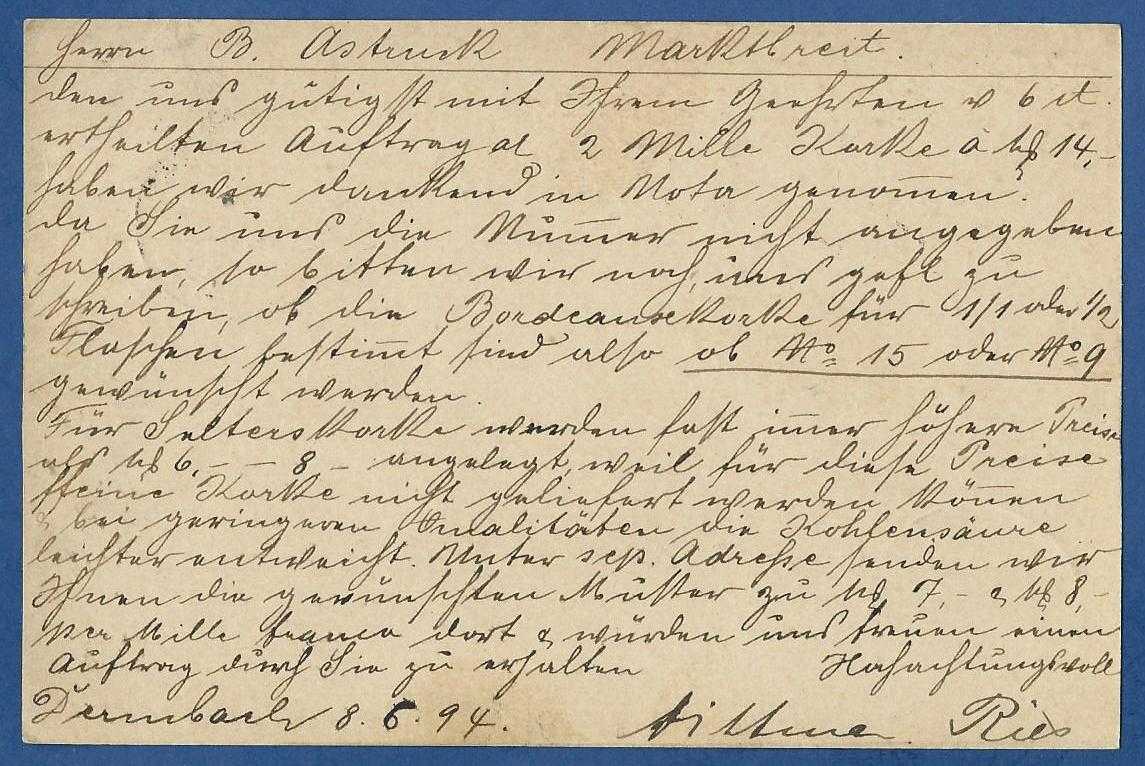 Herrn B. Astruck Marktbreit.
den uns gütigst mit Ihrem Geehrten v 6 d.
ertheilten Auftrag al 2 Mille Korke à M 14,-
haben wir dankend in Nota genom̅en.
da Sie uns die Num̅er nicht angegeben
haben, so bitten wir noch, uns gefl zu
schreiben, ob die Bordeauxkorke für 1/1 oder 1/2
Flaschen bestim̅t sind also ob No 15 oder No 9
gewünscht werden.
Für Selterskorke werden fast im̅er höhere Preise
als M 6,- - 8,- angelegt, weil für diese Preise
ffeine Korke nicht geliefert werden kön̅en
& bei geringeren Qualitäten die Kohlensäure
leichter entweicht. Unter sep. Adresse senden wir
Ihnen die gewünschten Muster zu M 7,- & M 8,-
per Mille franco dort & würden uns freuen einen
Auftrag durch Sie zu erhalten Hochachtungsvoll
Dermbach 8. 6. 94. Ries